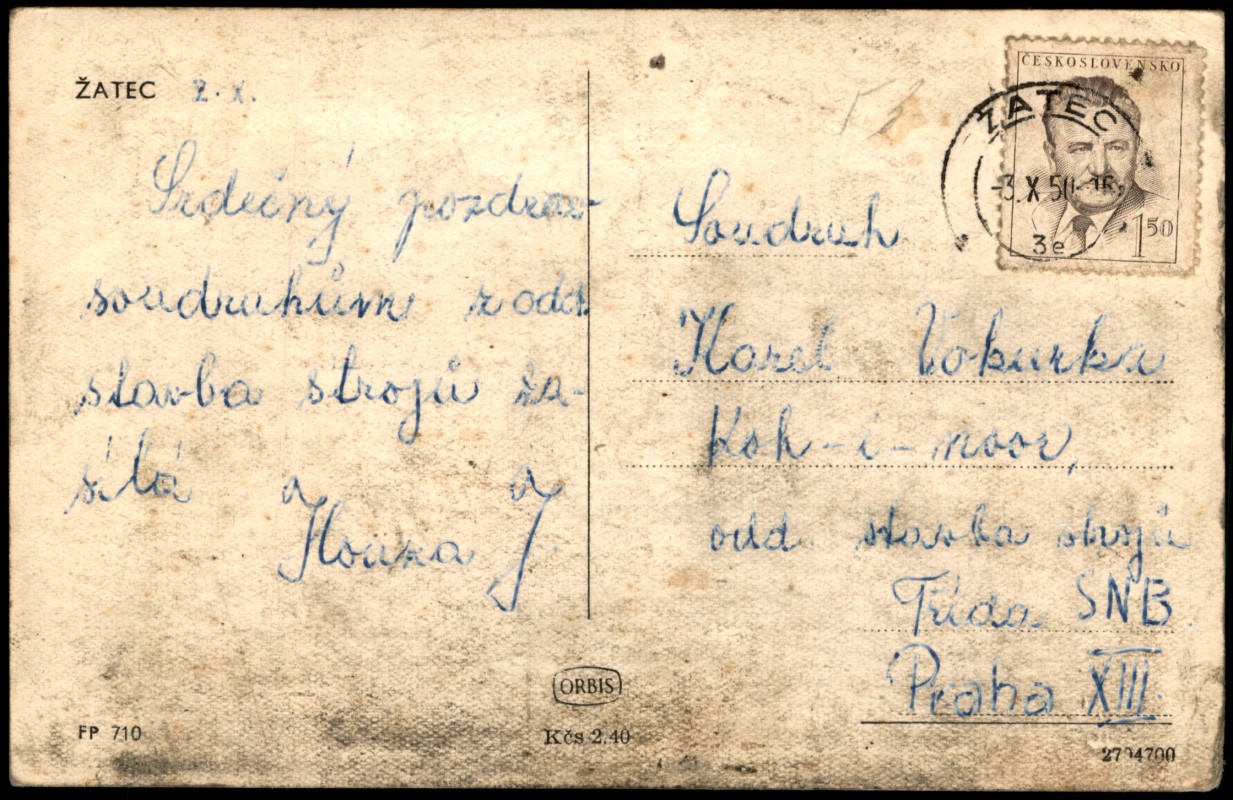 ŽATEC 2. X.
Srdečný pozdrav
soudruhům z odd.
stavba strojů za-
sílá
Houza J.
ČESKOSLOVENSKO
ŽATEC
-3. X 50
3e
1 50
Soudruh
Karel Vokurka
Koh-i-noor,
odd. stavba strojů
Třída SNB
Praha XIII.
ORBIS
FP 710
Kčs 2.40